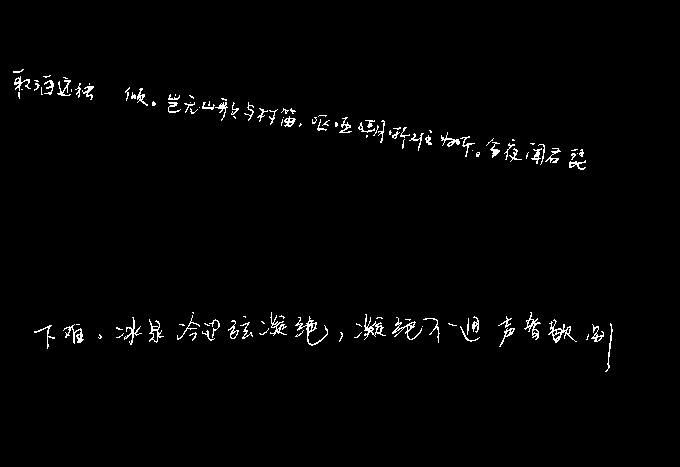 取酒还独 倾。岂无山歌与村笛,呕哑嘲哳难为听。今夜闻君琵
下难。冰泉冷涩弦凝绝,凝绝不通声暂歇,别